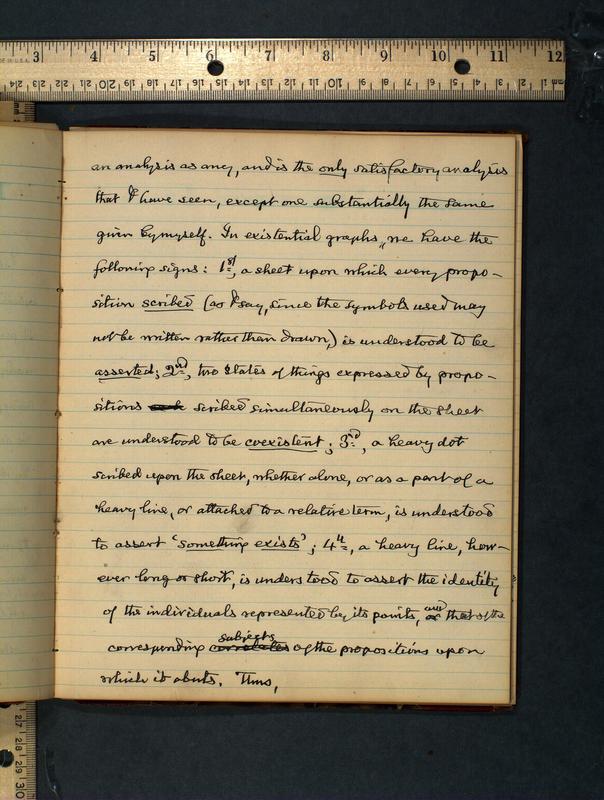 3 4 5 6 7 8 9 10 11 12
an analysis as any, and is the only satisfactory analysis
that I have seen, except one substantially the same
given by myself. In existential graphs, we have the
following signs: 1st, a sheet upon which every propo-
sition scribed (as I say, since the symbols used may
not be written rather than drawn,) is understood to be
asserted; 2nd, two states of things expressed by propo-
sitions scribed simultaneously on the sheet
are understood to be coexistent; 3rd, a heavy dot
scribed upon the sheet, whether alone, or as a part of a
heavy line, or attached to a relative term, is understood
to assert 'something exists'; 4th, a heavy line, how-
ever long or short, is understood to assert the identity
of the individuals represented by its points, and or that of the
corresponding correlates subjects of the propositions upon
which it abuts. Thus,